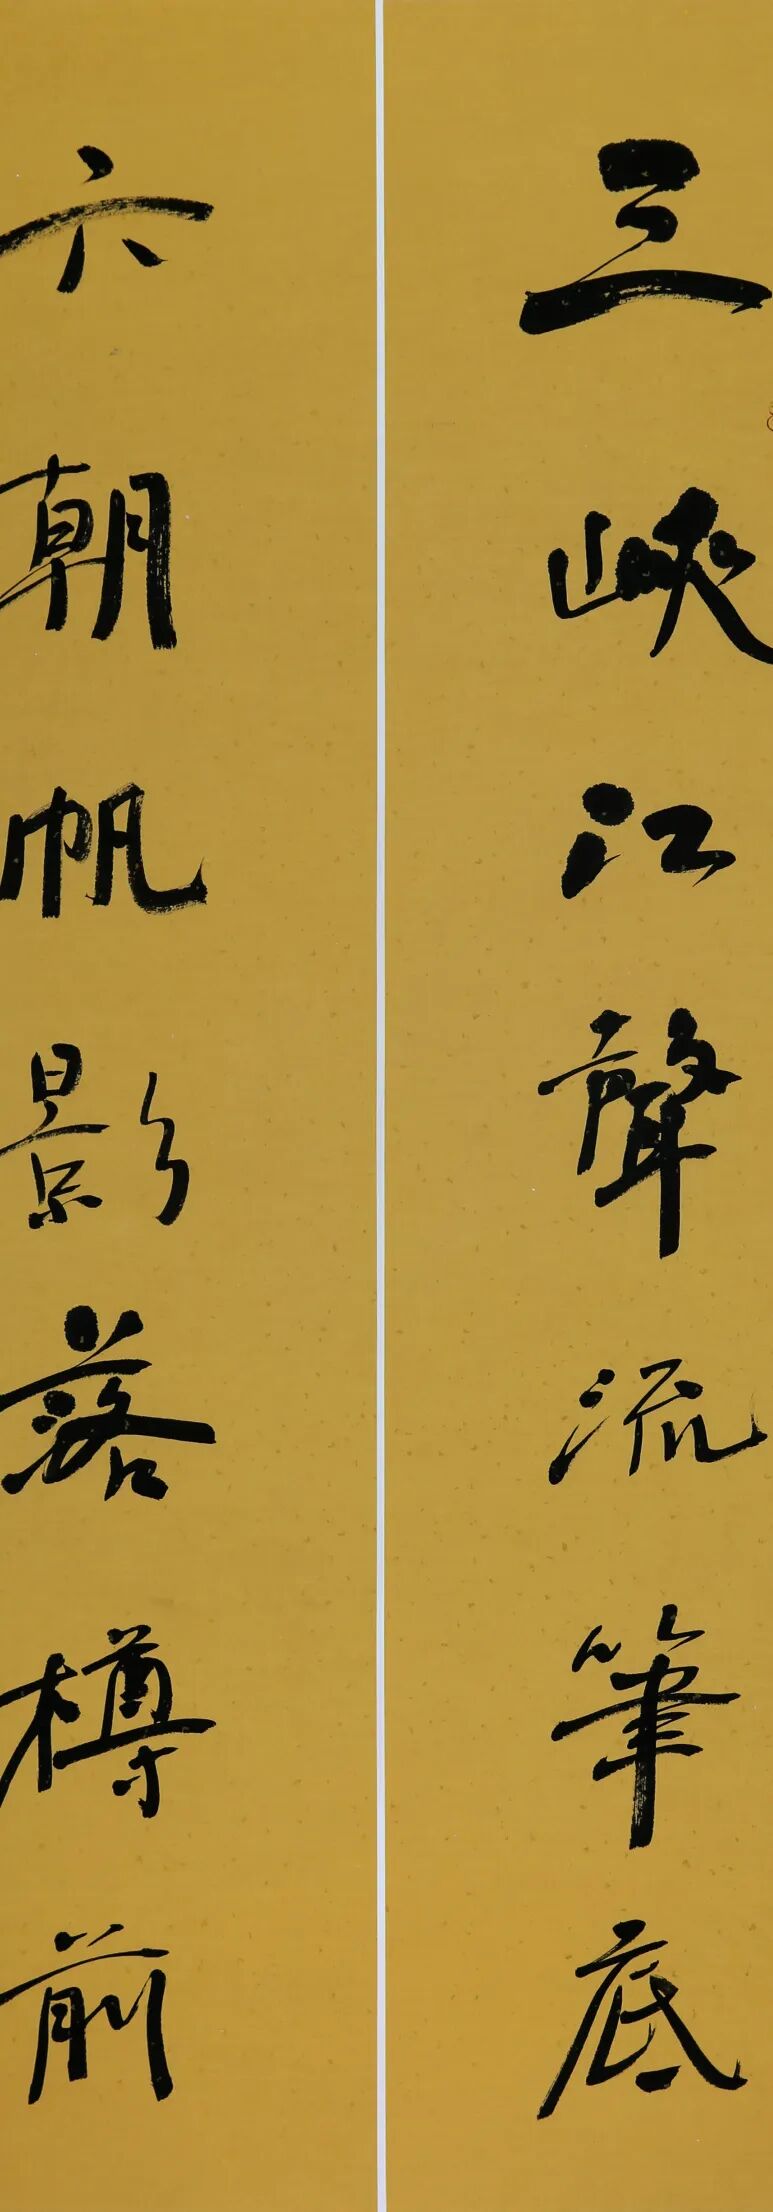 三峽江聲流筆底
六朝帆影落樽前